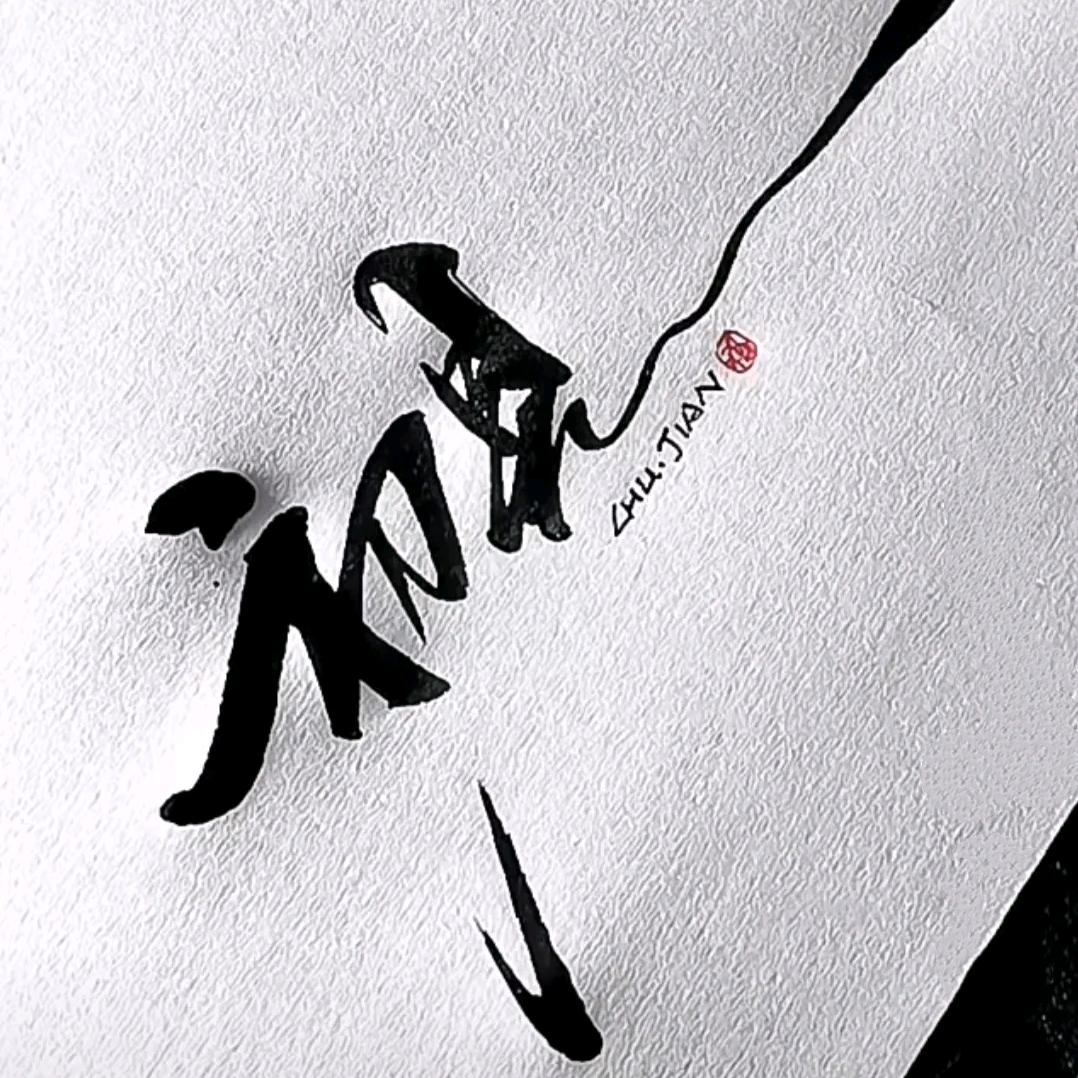 初见
CHU.JIAN